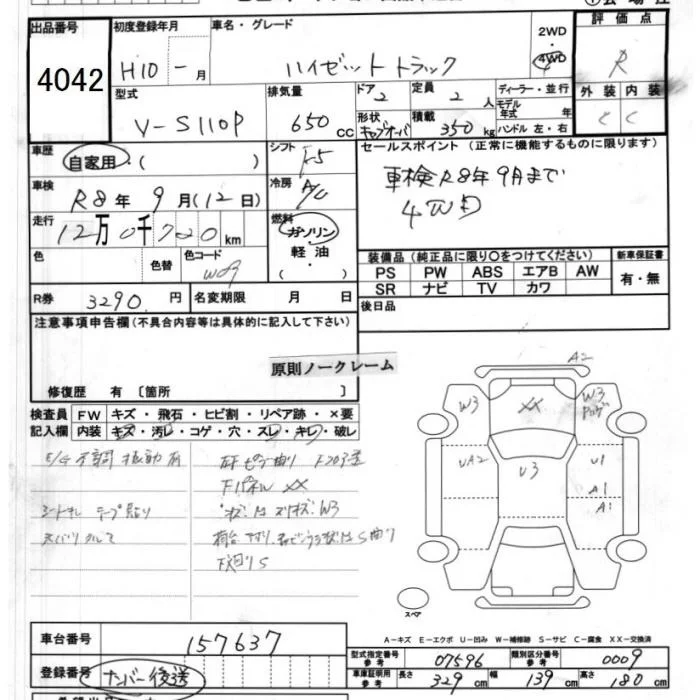 出品番号
4042
初度登録年月
H10 - 月
車名・グレード
ハイゼットトラック
2WD
4WD
評価点
R
外装 内装
C C
型式
V-S110P
排気量
650 cc
ドア 2
定員 2 人
形状 キャブオーバ
積載 350 kg
ディーラー・並行
モデル年式 年
ハンドル 左・右
車歴
自家用・( )
シフト
F5
セールスポイント (正常に機能するものに限ります)
車検R8年9月まで
4WD
車検
R8年 9月(12日)
冷房
A/C
走行
12万0千720km
燃料
ガソリン
軽油
・
色
色替
色コード
W09
装備品 (純正品に限り○をつけてください)
PS PW ABS エアB AW
SR ナビ TV カワ
新車保証書
有・無
R券 3290 円
名変期限 月 日
後日品
注意事項申告欄(不具合内容等は具体的に記入して下さい)
原則ノークレーム
修復歴 有 〔箇所 〕
検査員記入欄
FW キズ・飛石・ヒビ割・リペア跡・×要
内装 キズ・汚レ・コゲ・穴・スレ・キレ・破レ
E/G不調 振動有
シートキレ テープ貼り
Fパネル XX
A2
W3
XX
W3
UA2
U3
U1
A1
A1
スペア
A-キズ E-エクボ U-凹み W-補修跡 S-サビ C-腐食 XX-交換済
車台番号
157637
登録番号
ナンバー後送
型式指定番号
参考
07596
類別区分番号
参考
0009
車庫証明用
参考
長さ 329cm
幅 139cm
高さ 180cm